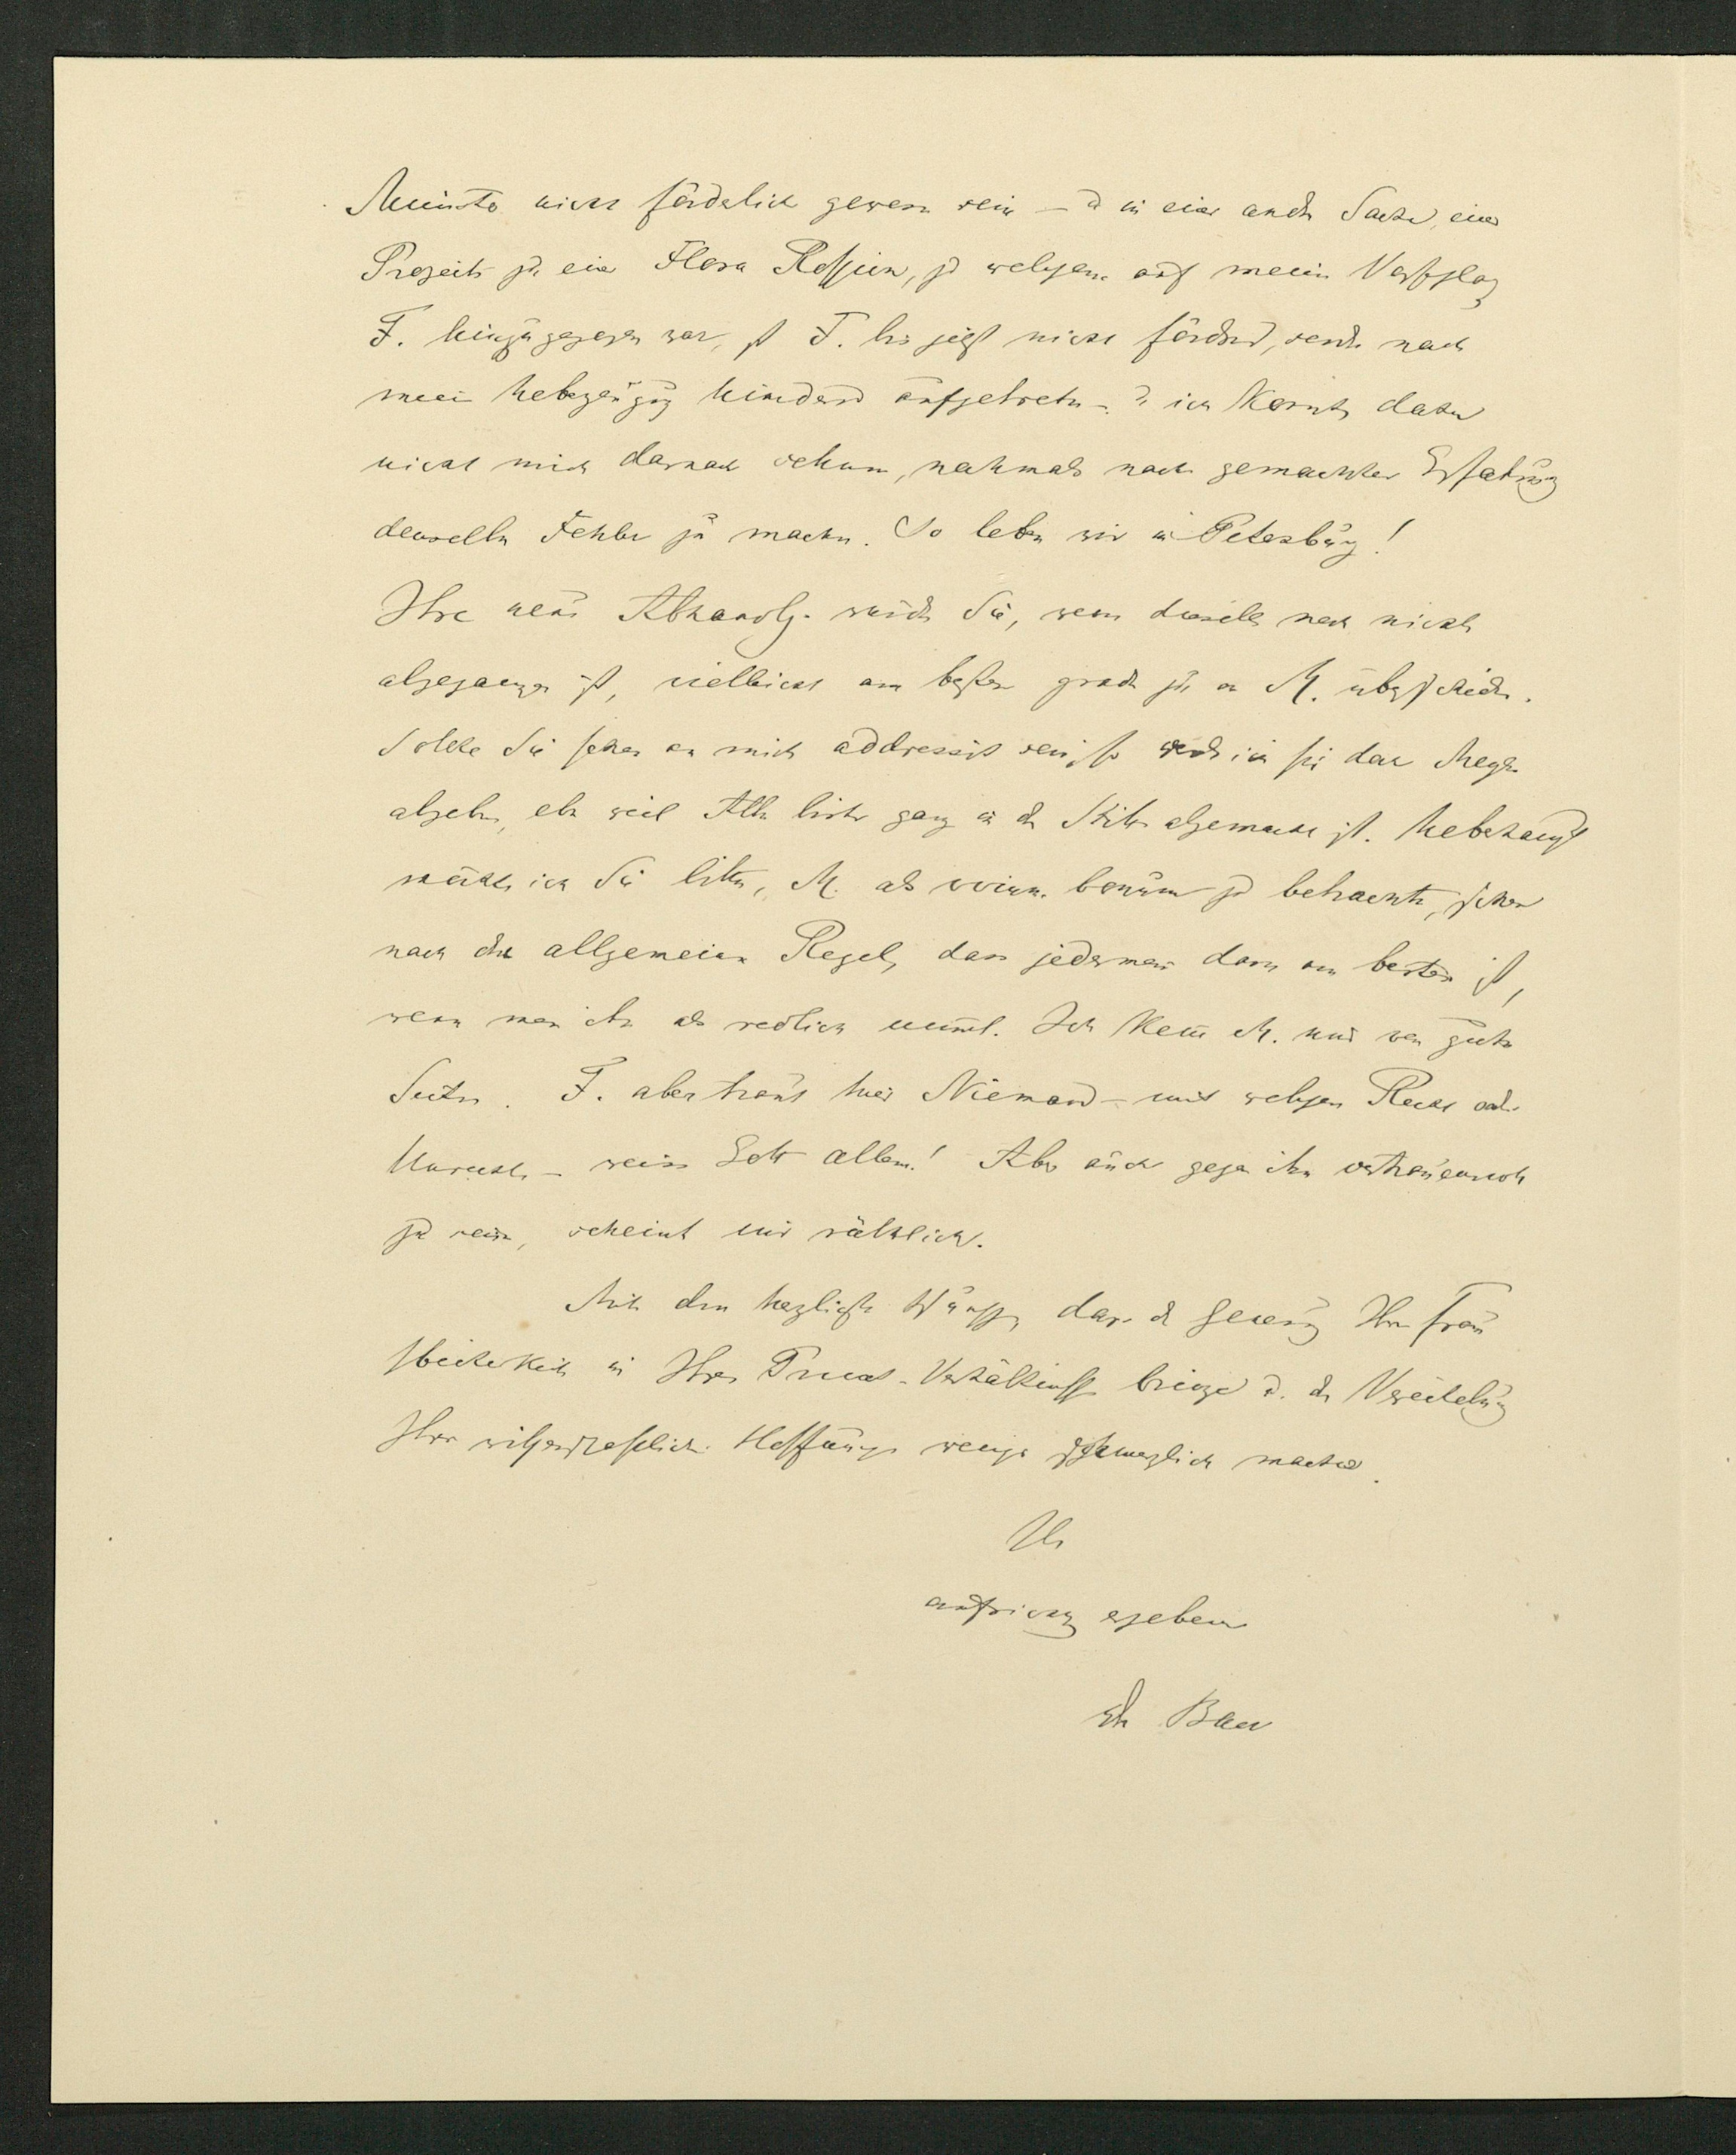 Minister nicht förderlich gewesen sein – u in einer andern Sache, eines
Projects zu einer Flora Rossica, zu welchem auf meinen Vorschlag
F. hinzugezogen war, ist F. bis jetzt nicht fördernd, sondern nach
meiner Ueberzeugung hindernd aufgetreten – u ich konnte daher
nicht mich darnach sehnen, nochmals nach gemachter Erfahrung
denselben Fehler zu machen. So leben wir in Petersburg!
Ihre neue Abhandlg. würden Sie, wenn dieselbe noch nicht
abgegangen ist, vielleicht am besten grade zu an M. überschicken.
Sollte Sie schon an mich addressirt sein, so werde ich sie dan Meyer
abgeben, eben weil Alles bisher ganz in der Stille abgemacht ist. Ueberhaupt
möchte ich Sie bitten, M. als virum bonum zu betrachten, schon
nach der allgemeinen Regel, dass jedermann dann am besten ist,
wenn man ihn als redlich nimmt. Ich kenne M. nur von guten
Seiten. F. aber traut hier Niemand – mit welchem Recht oder
Unrecht – weiss Gott allein! Aber auch gegen ihn vertrauensvoll
zu sein, scheint mir räthlich.
Mit den herzlichsten Wünschen, dass die Genesung Ihrer Frau
Heiterkeit in Ihre Privat-Verhältnisse bringe u. die Vereitelung
Ihrer wissenschaftlichen Hoffnungen weniger schmerzlich mache.
Ihr
aufrichtig ergebener
Dr Baer